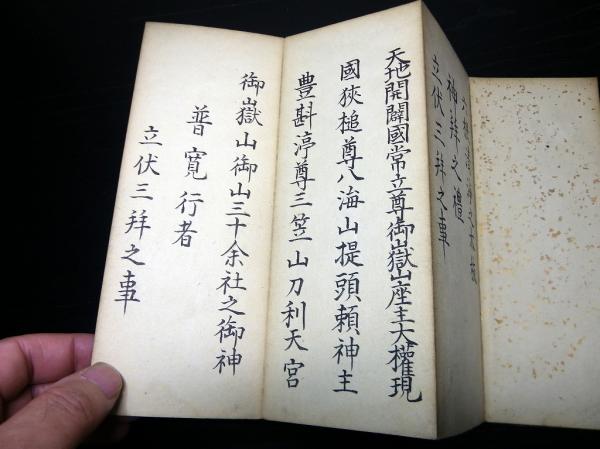 神拜之禮
立伏三拜之事
天地開闢國常立尊御嶽山座主大權現
國狹槌尊八海山提頭賴神主
豊斟渟尊三笠山刀利天宮
御嶽山御山三十余社之御神
普寬行者
立伏三拜之事